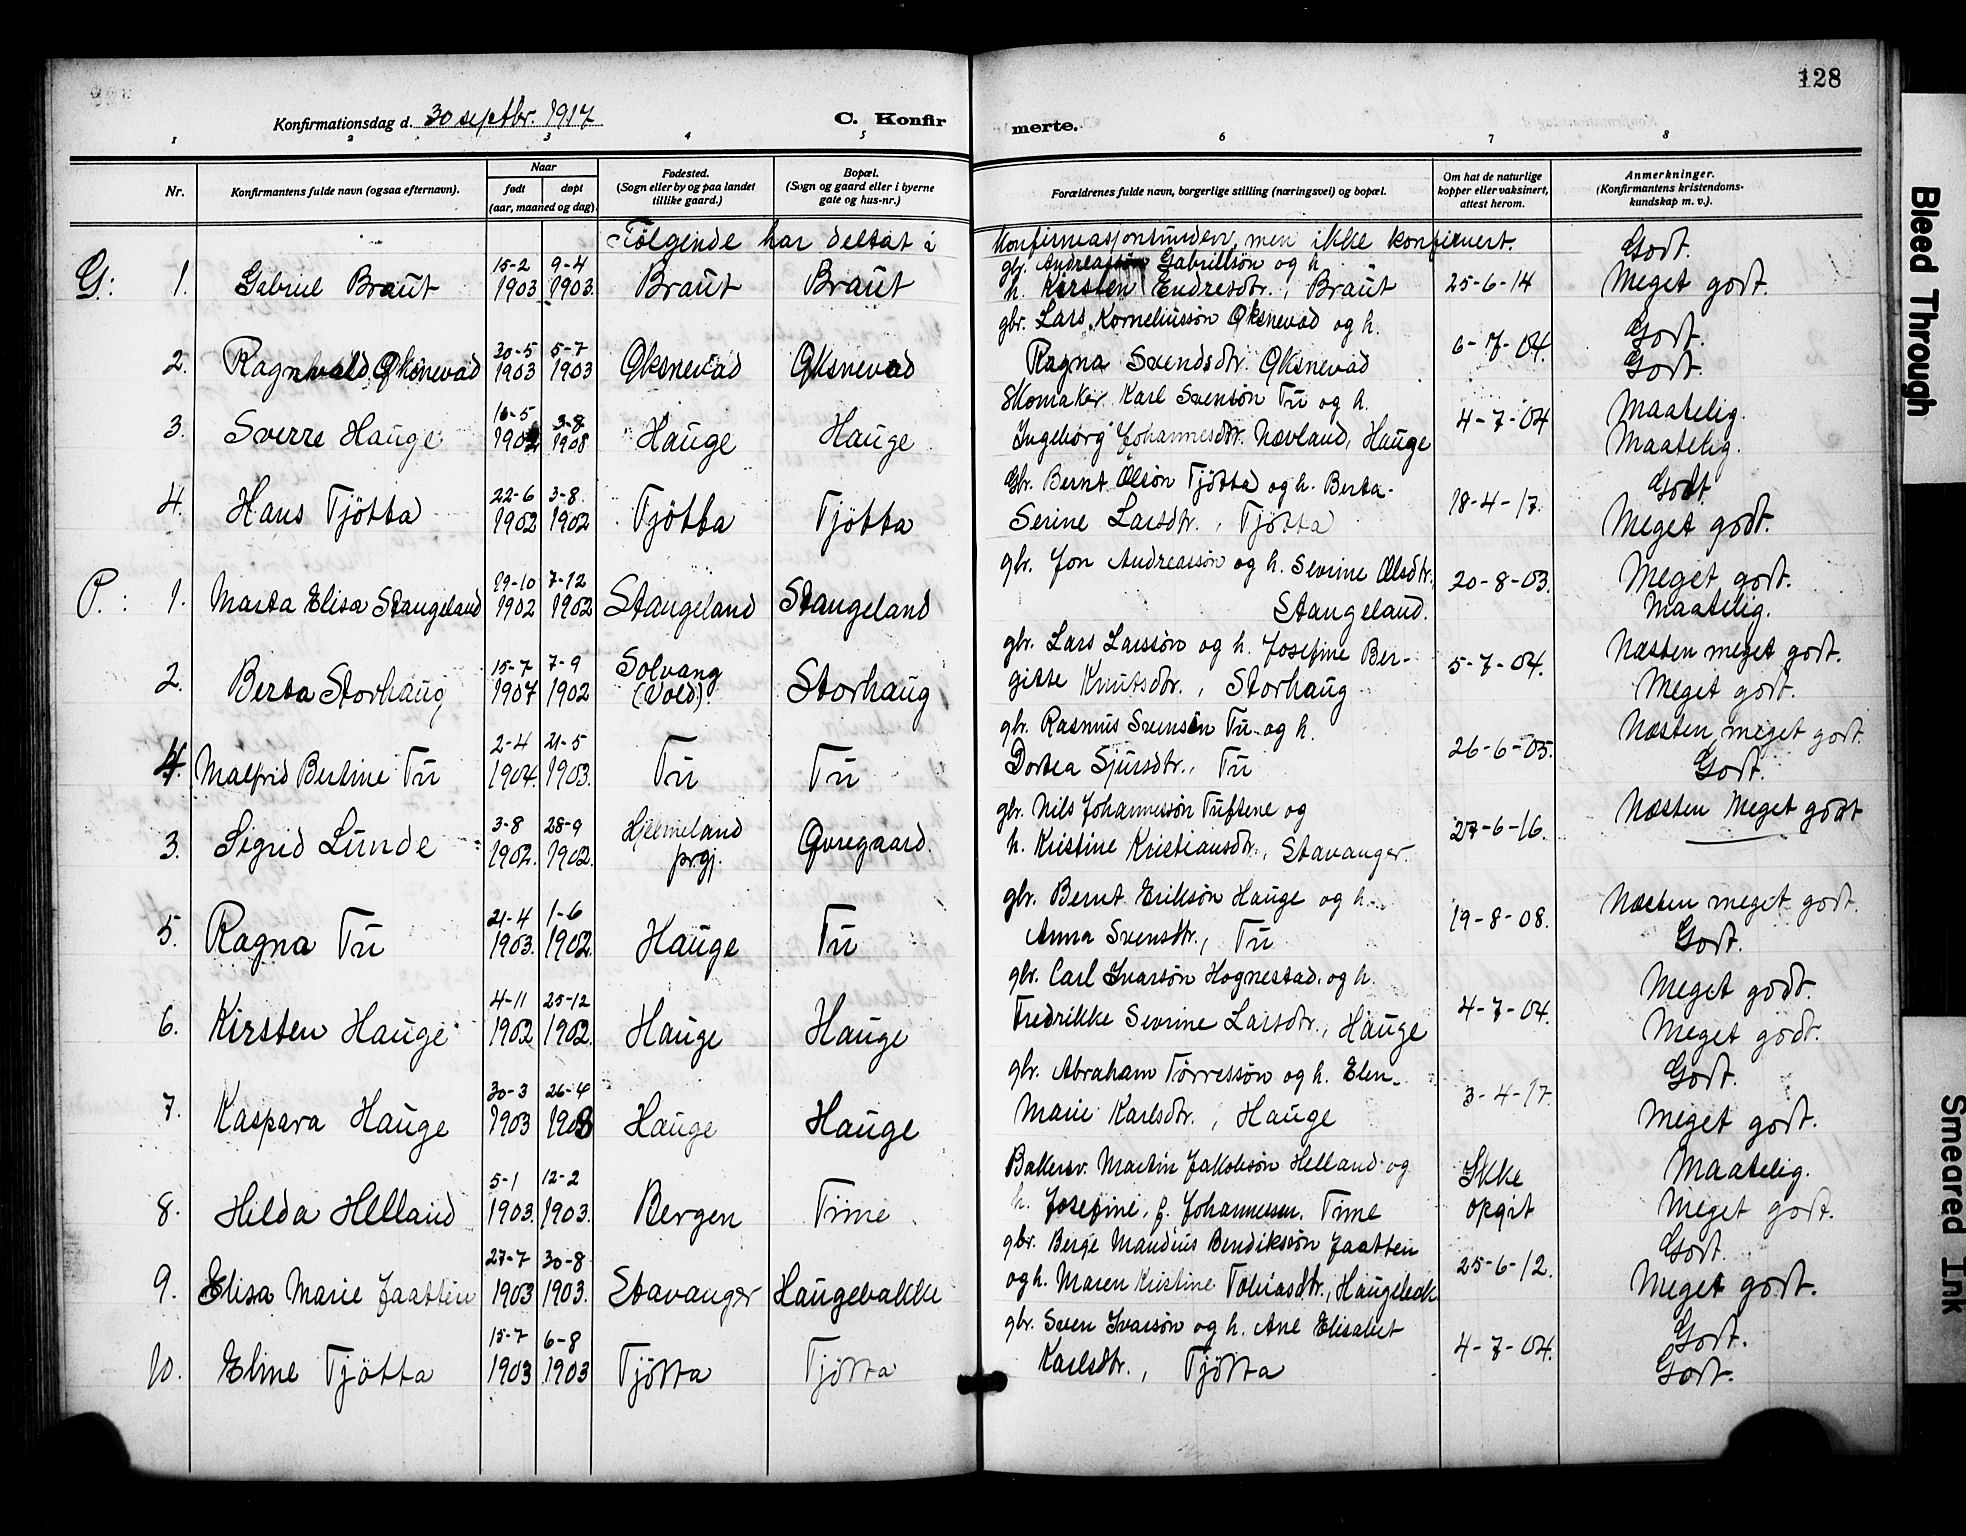 128
Konfirmationsdag d. 30 septbr. 1917
C. Konfirmerte.
1 2 3 4 5 6 7 8
Nr.
Konfirmantens fulde navn (ogsaa efternavn).
Naar
født
døpt
(aar, maaned og dag).
Fødested.
(Sogn eller by og paa landet
tillike gaard.)
Bopæl.
(Sogn og gaard eller i byerne
gate og hus-nr.)
Forældrenes fulde navn, borgerlige stilling (næringsvei) og bopæl.
Om hat de naturlige
kopper eller vaksinert,
attest herom.
Anmerkninger.
(Konfirmantens kristendoms-
kundskap m. v.).
Følgende har deltat i men ikke konfirmert.
G: 1. Gabriel Braut 15-2 1903 9-4 1903. Braut Braut
gbr. Gabrielsøn og h.
h. Kirsten Endresdtr., Braut
25-6-14
Godt.
Meget godt.
2. Ragnvald Øksnevad 30-5 1903 5-7 1903 Øksnevad Øksnevad
gbr. Lars Korneliussøn Øksnevad og h.
Ragna Svendsdtr. Øksnevad
6-7-04.
Godt.
Godt.
3. Sverre Hauge 16-5 3-8 Hauge Hauge
Skomaker Karl Svensøn Tu og h.
Ingeborg Johannesdtr. Nævland, Hauge
4-7-04
Maatelig.
Maatelig.
4. Hans Tjötta 22-6 1902 3-8. 1902 Tjötta Tjötta
Gbr. Bernt Olsön Tjötta og h. Berta-
Serine Larsdtr., Tjötta
18-4-17.
Godt
Meget godt.
P.: 1. Marta Elisa Stangeland 19-10 1902 7-12 1902 Stangeland Stangeland
gbr. Jon Andreassøn og h. Sevrine Olsdtr.
Stangeland.
20-8-03.
Meget godt.
Maatelig.
2. Berta Storhaug 15-7 7-9 1902 Solvang (Vold). Storhaug
gbr. Lars Larssøn og h. Josefine Ber-
gitte Knutsdtr., Storhaug
5-7-04.
Næsten meget godt.
Meget godt.
4. Malfrid Bertine Tu 2-4 21-5 1903. Tu Tu
gbr. Rasmus Svensön Tu og h.
Dortea Sjursdtr., Tu
26-6-05.
Næsten meget godt.
Godt.
3. Sigrid Lunde 3-8 1902. 28-9 1902. Hjelmeland prgj. Øvregaard.
gbr. Nils Johannessøn Tuftene og
h. Kristine Kristiansdtr., Stavanger.
27-6-16.
Næsten Meget godt
5. Ragna Tu 21-4 1903. 1-6 1902. Hauge Tu
gbr. Bernt Eriksøn Hauge og h.
Anna Svensdtr., Tu
19-8-08.
Næsten meget godt.
Godt.
6. Kirsten Hauge 4-11 1902 25-12 1902. Hauge Hauge
gbr. Carl Ivarsøn Hognestad og h.
Fredrikke Sevrine Larsdtr., Hauge
4-7-04.
Meget godt.
Meget godt.
7. Kaspara Hauge 30-3 1903 26-4 1903 Hauge Hauge
gbr. Abraham Tørressøn og h. Elen-
Marie Karlsdtr., Hauge
3-4-17.
Godt.
Meget godt.
8. Hilda Helland 5-1 1903. 12-2 1903. Bergen Time
Martin Jakobsøn Helland og
h. Josefine, f. Johannessen. Time
Ikke
opgit
Maatelig.
Meget godt.
9. Elisa Marie Jaatten 27-7 1903 30-8 1903. Stavanger Haugebakke
gbr. Berge Maudius Bendiksøn Jaatten
og h. Maren Kristine Tobiasdtr., Haugebak
25-6-12.
Godt.
Meget godt.
10. Eline Tjötta 15-7 1903 6-8 1903 Tjötta Tjötta
gbr. Sven Ivarsøn og h. Ane Elisabet
Karlsdtr., Tjötta
4-7-04.
Godt.
Godt.
Bleed Through
Smeared Ink